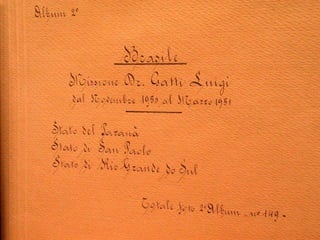 Album 2º
Brasile
Missione Dr. Gatti Luigi
dal Novembre 1950 al Marzo 1951
Stato del Paranà
Stato di San Paolo
Stato di Rio Grande do Sul
Totale foto 2º Album - nº 149 -